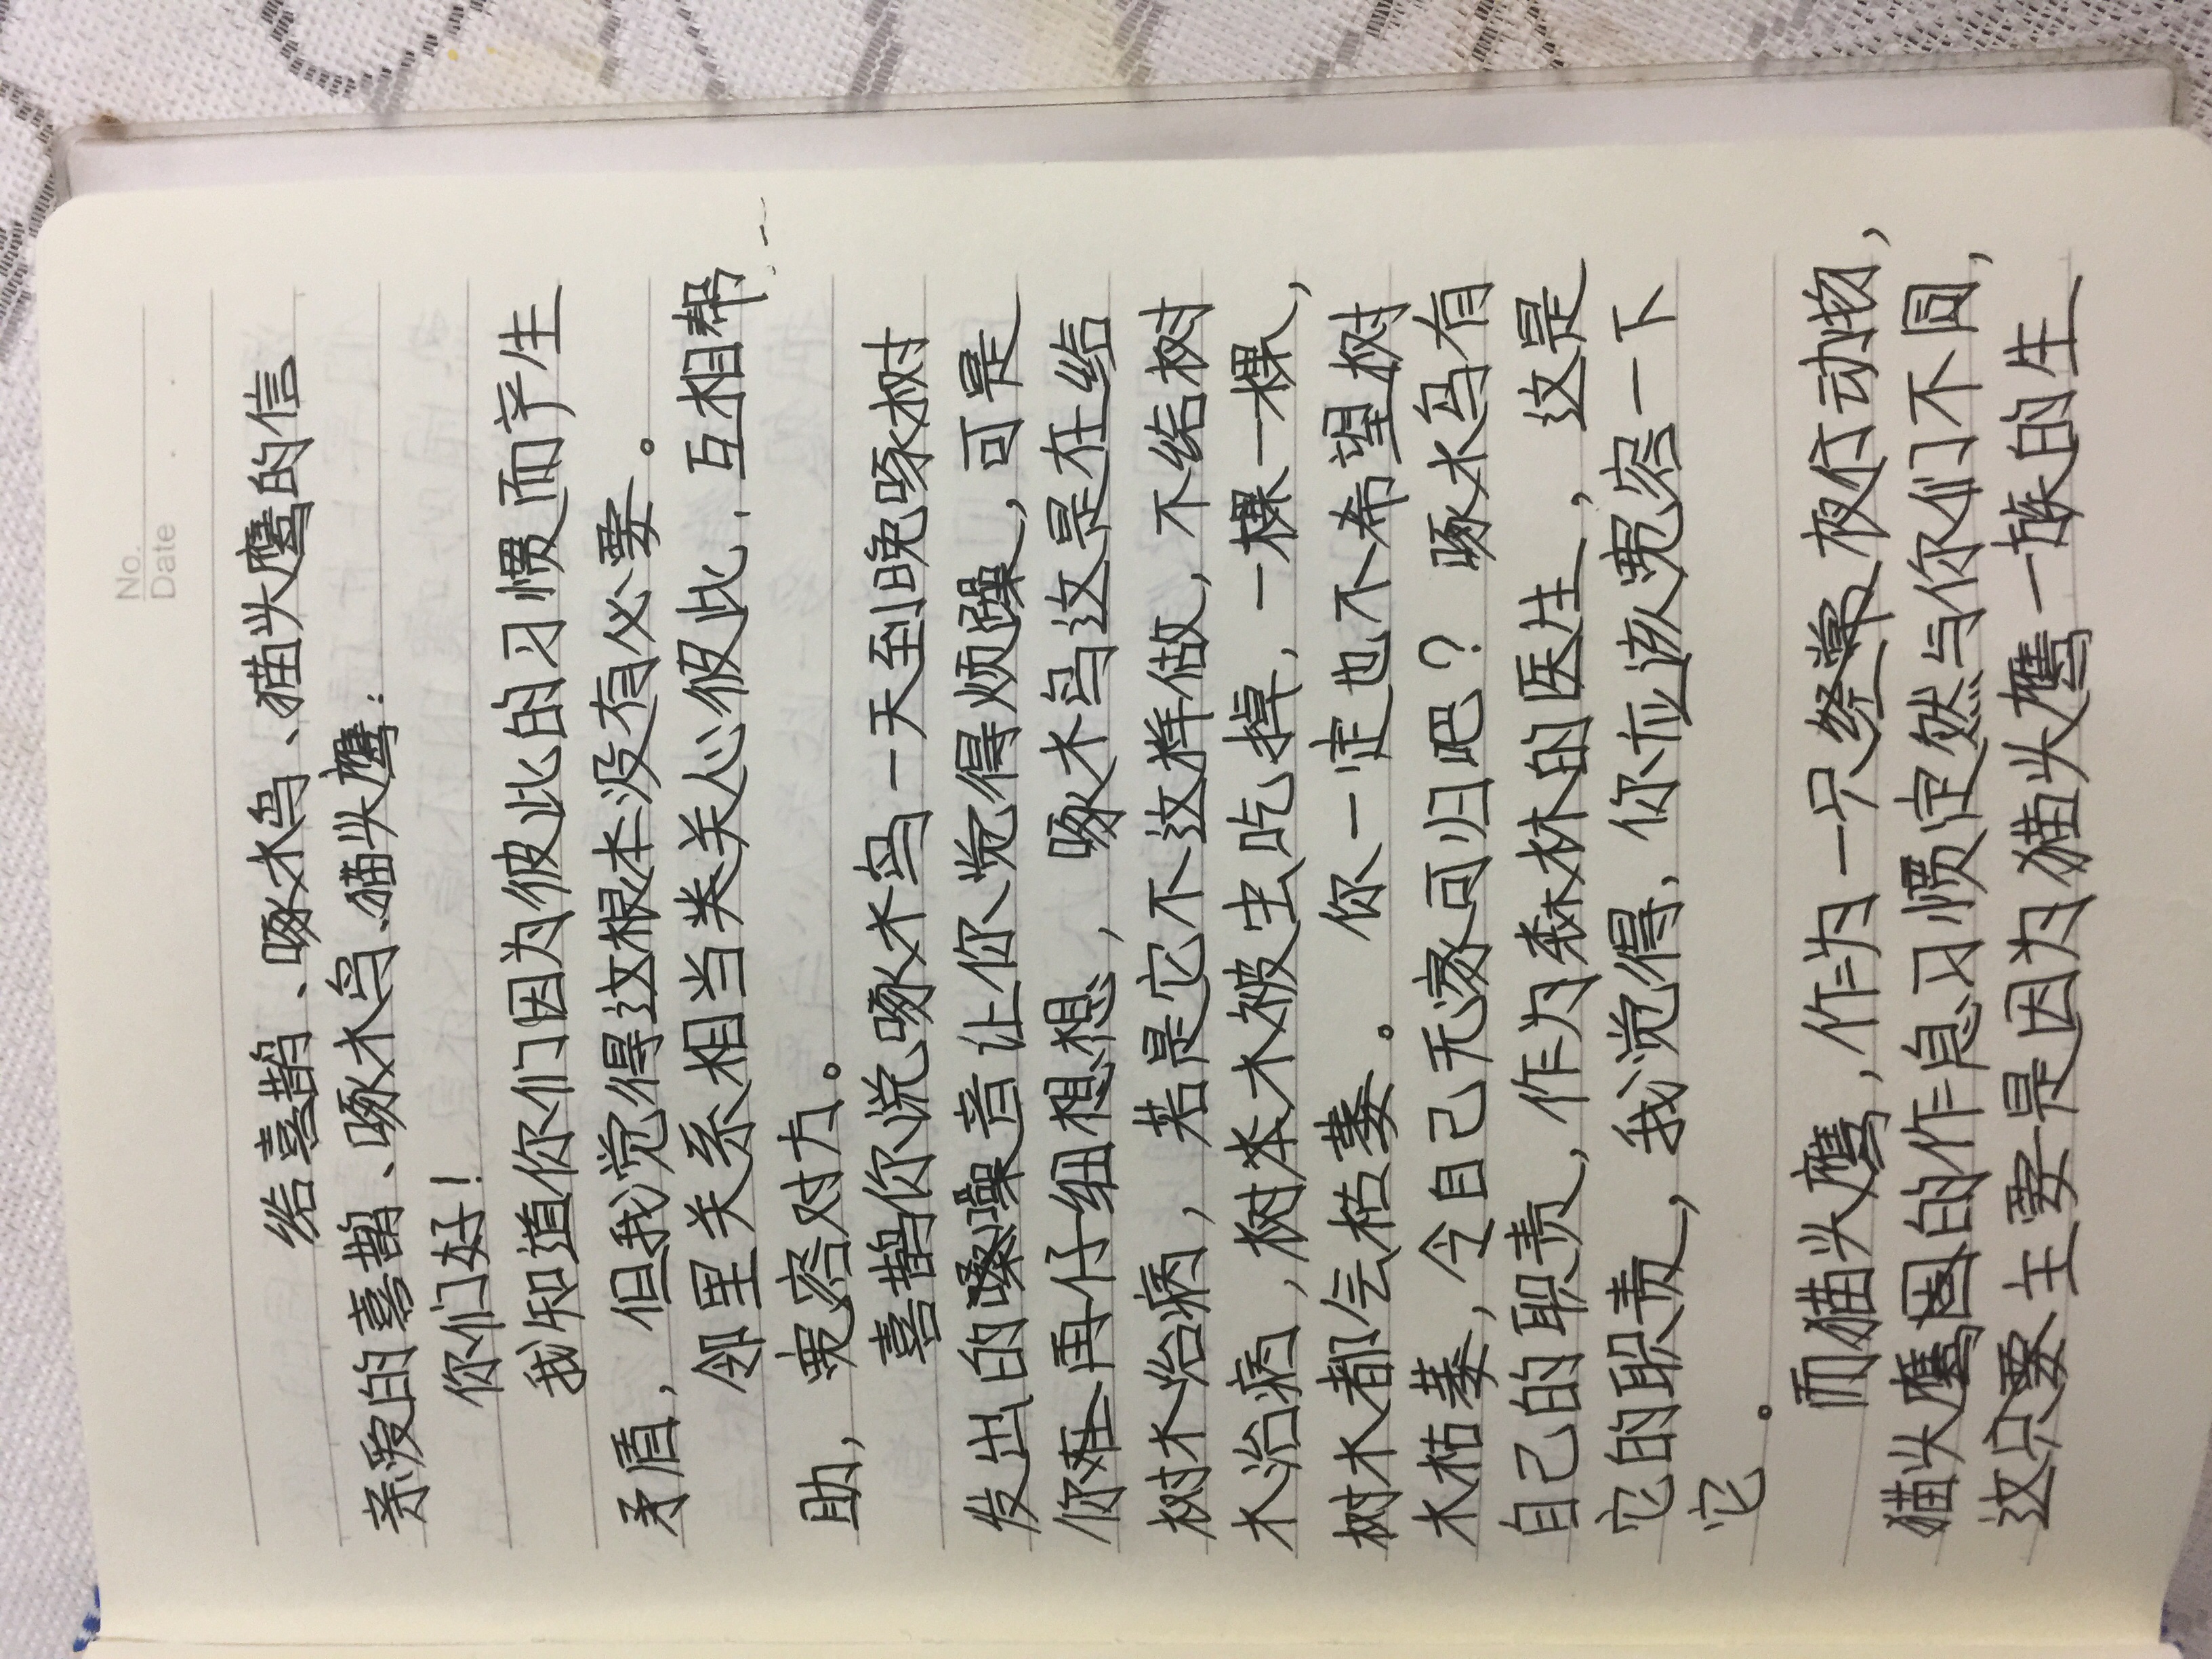 No.
Date
给喜鹊、啄木鸟、猫头鹰的信
亲爱的喜鹊、啄木鸟、猫头鹰:
你们好!
我知道你们因为彼此的习惯而产生
矛盾,但我觉得这根本没有必要。
邻里关系相当类关心彼此,互相帮
助,宽容对方。
喜鹊你说啄木鸟一天到晚啄树
发出的噪音让你觉得烦躁,可是
你在再仔细想想,啄木鸟这是在给
树木治病,若是它不这样做,不给树
木治病,树本木被虫吃掉,一棵一棵,
树木都会枯萎。你一定也不希望树
木枯萎,令自己无家可归吧?啄木鸟有
自己的职责,作为森林的医生,这是
它的职责,我觉得,你应该宽容一下
它。
而猫头鹰,作为一只夜行动物,
猫头鹰的作息习惯定然与你们不同,
这主要是因为猫头鹰一族的生